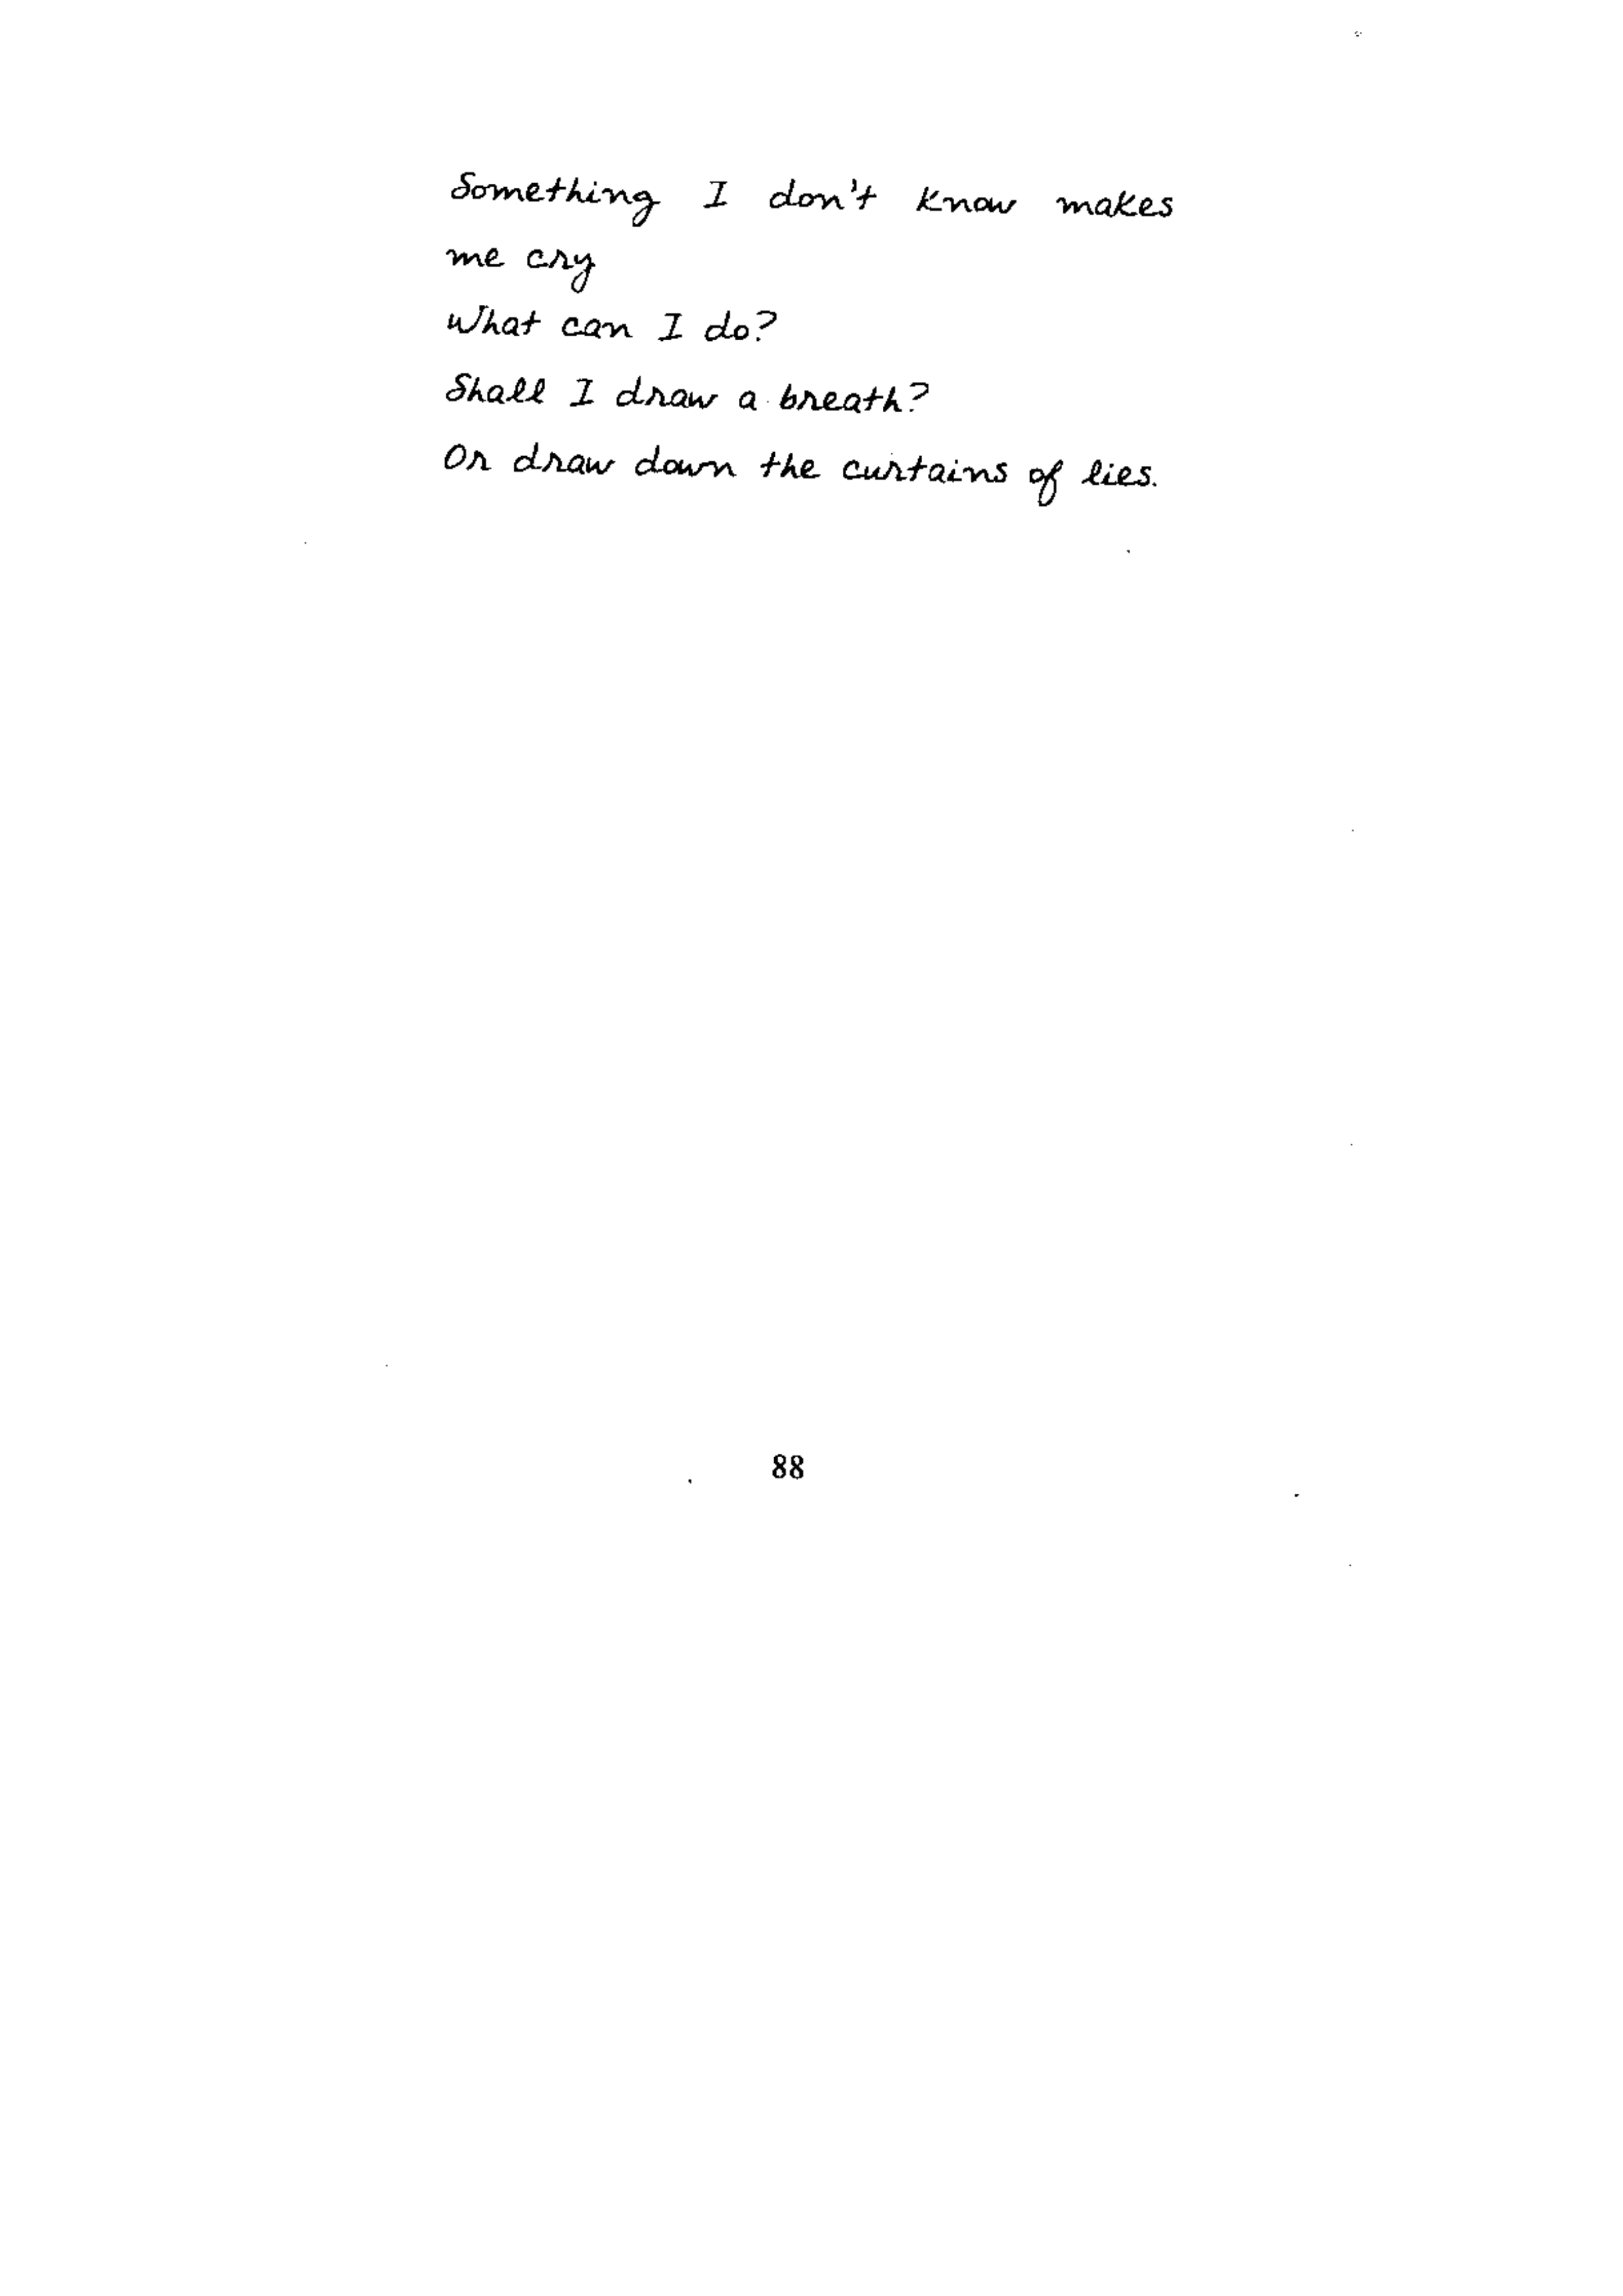 Something I don't know makes
me cry
What can I do?
Shall I draw a breath?
Or draw down the curtains of lies.
88